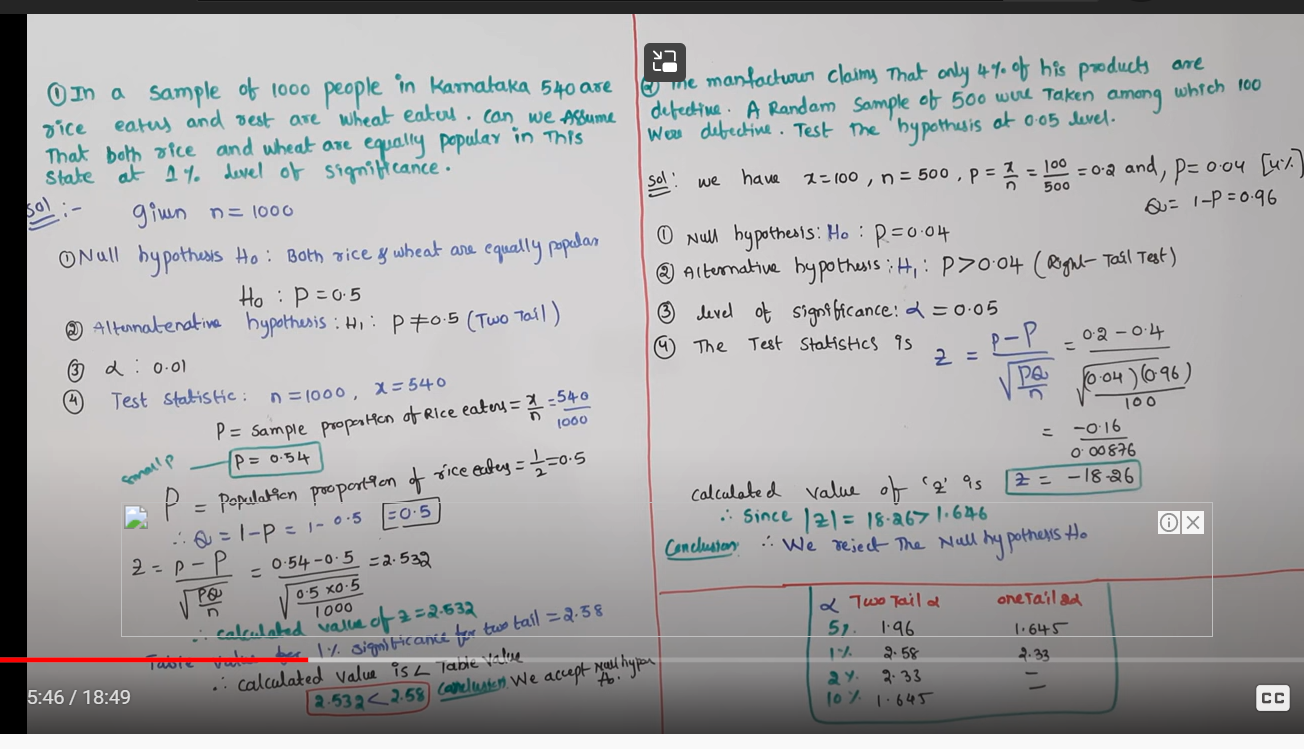 ① In a sample of 1000 people in Karnataka 540 are
rice eaters and rest are wheat eaters. Can we Assume
That both rice and wheat are equally popular in This
State at 1% level of significance.
Sol :- given n = 1000
① Null hypothesis H₀ : Both rice & wheat are equally popular
H₀ : P = 0.5
② Alternatenative hypothesis : H₁ : P ≠ 0.5 (Two Tail)
③ α : 0.01
④ Test statistic : n = 1000, x = 540
P = sample proportion of Rice eaters = x/n = 540/1000
small p
P = 0.54
P = Population proportion of rice eaters = 1/2 = 0.5
∴ Q = 1 - P = 1 - 0.5 = 0.5
Z = p - P / √(PQ/n) = 0.54 - 0.5 / √(0.5 × 0.5 / 1000) = 2.532
∴ calculated value of z = 2.532
Table value for 1% significance for two tail = 2.58
∴ calculated value is < Table value
2.532 < 2.58 Conclusion We accept Null hypo
H₀.
② The manfacturer claims That only 4% of his products are
defective. A Random sample of 500 were Taken among which 100
Were defective. Test The hypothesis at 0.05 level.
Sol : we have x = 100, n = 500, p = x/n = 100/500 = 0.2 and, P = 0.04 [4%]
Q = 1 - P = 0.96
① Null hypothesis : H₀ : P = 0.04
② Alternative hypothesis : H₁ : P > 0.04 (Right - Tail Test)
③ level of significance : α = 0.05
④ The Test Statistics is Z = P - P / √(PQ/n) = 0.2 - 0.4 / √((0.04)(0.96)/100)
= -0.16 / 0.00876
calculated value of 'z' is z = -18.26
∴ Since |z| = 18.26 > 1.646
Conclusion ∴ We reject The Null hypothesis H₀
α Two Tail α one Tail 2α
5%. 1.96 1.645
1% 2.58 2.33
2%. 2.33 —
10%. 1.645 —
5:46 / 18:49
CC